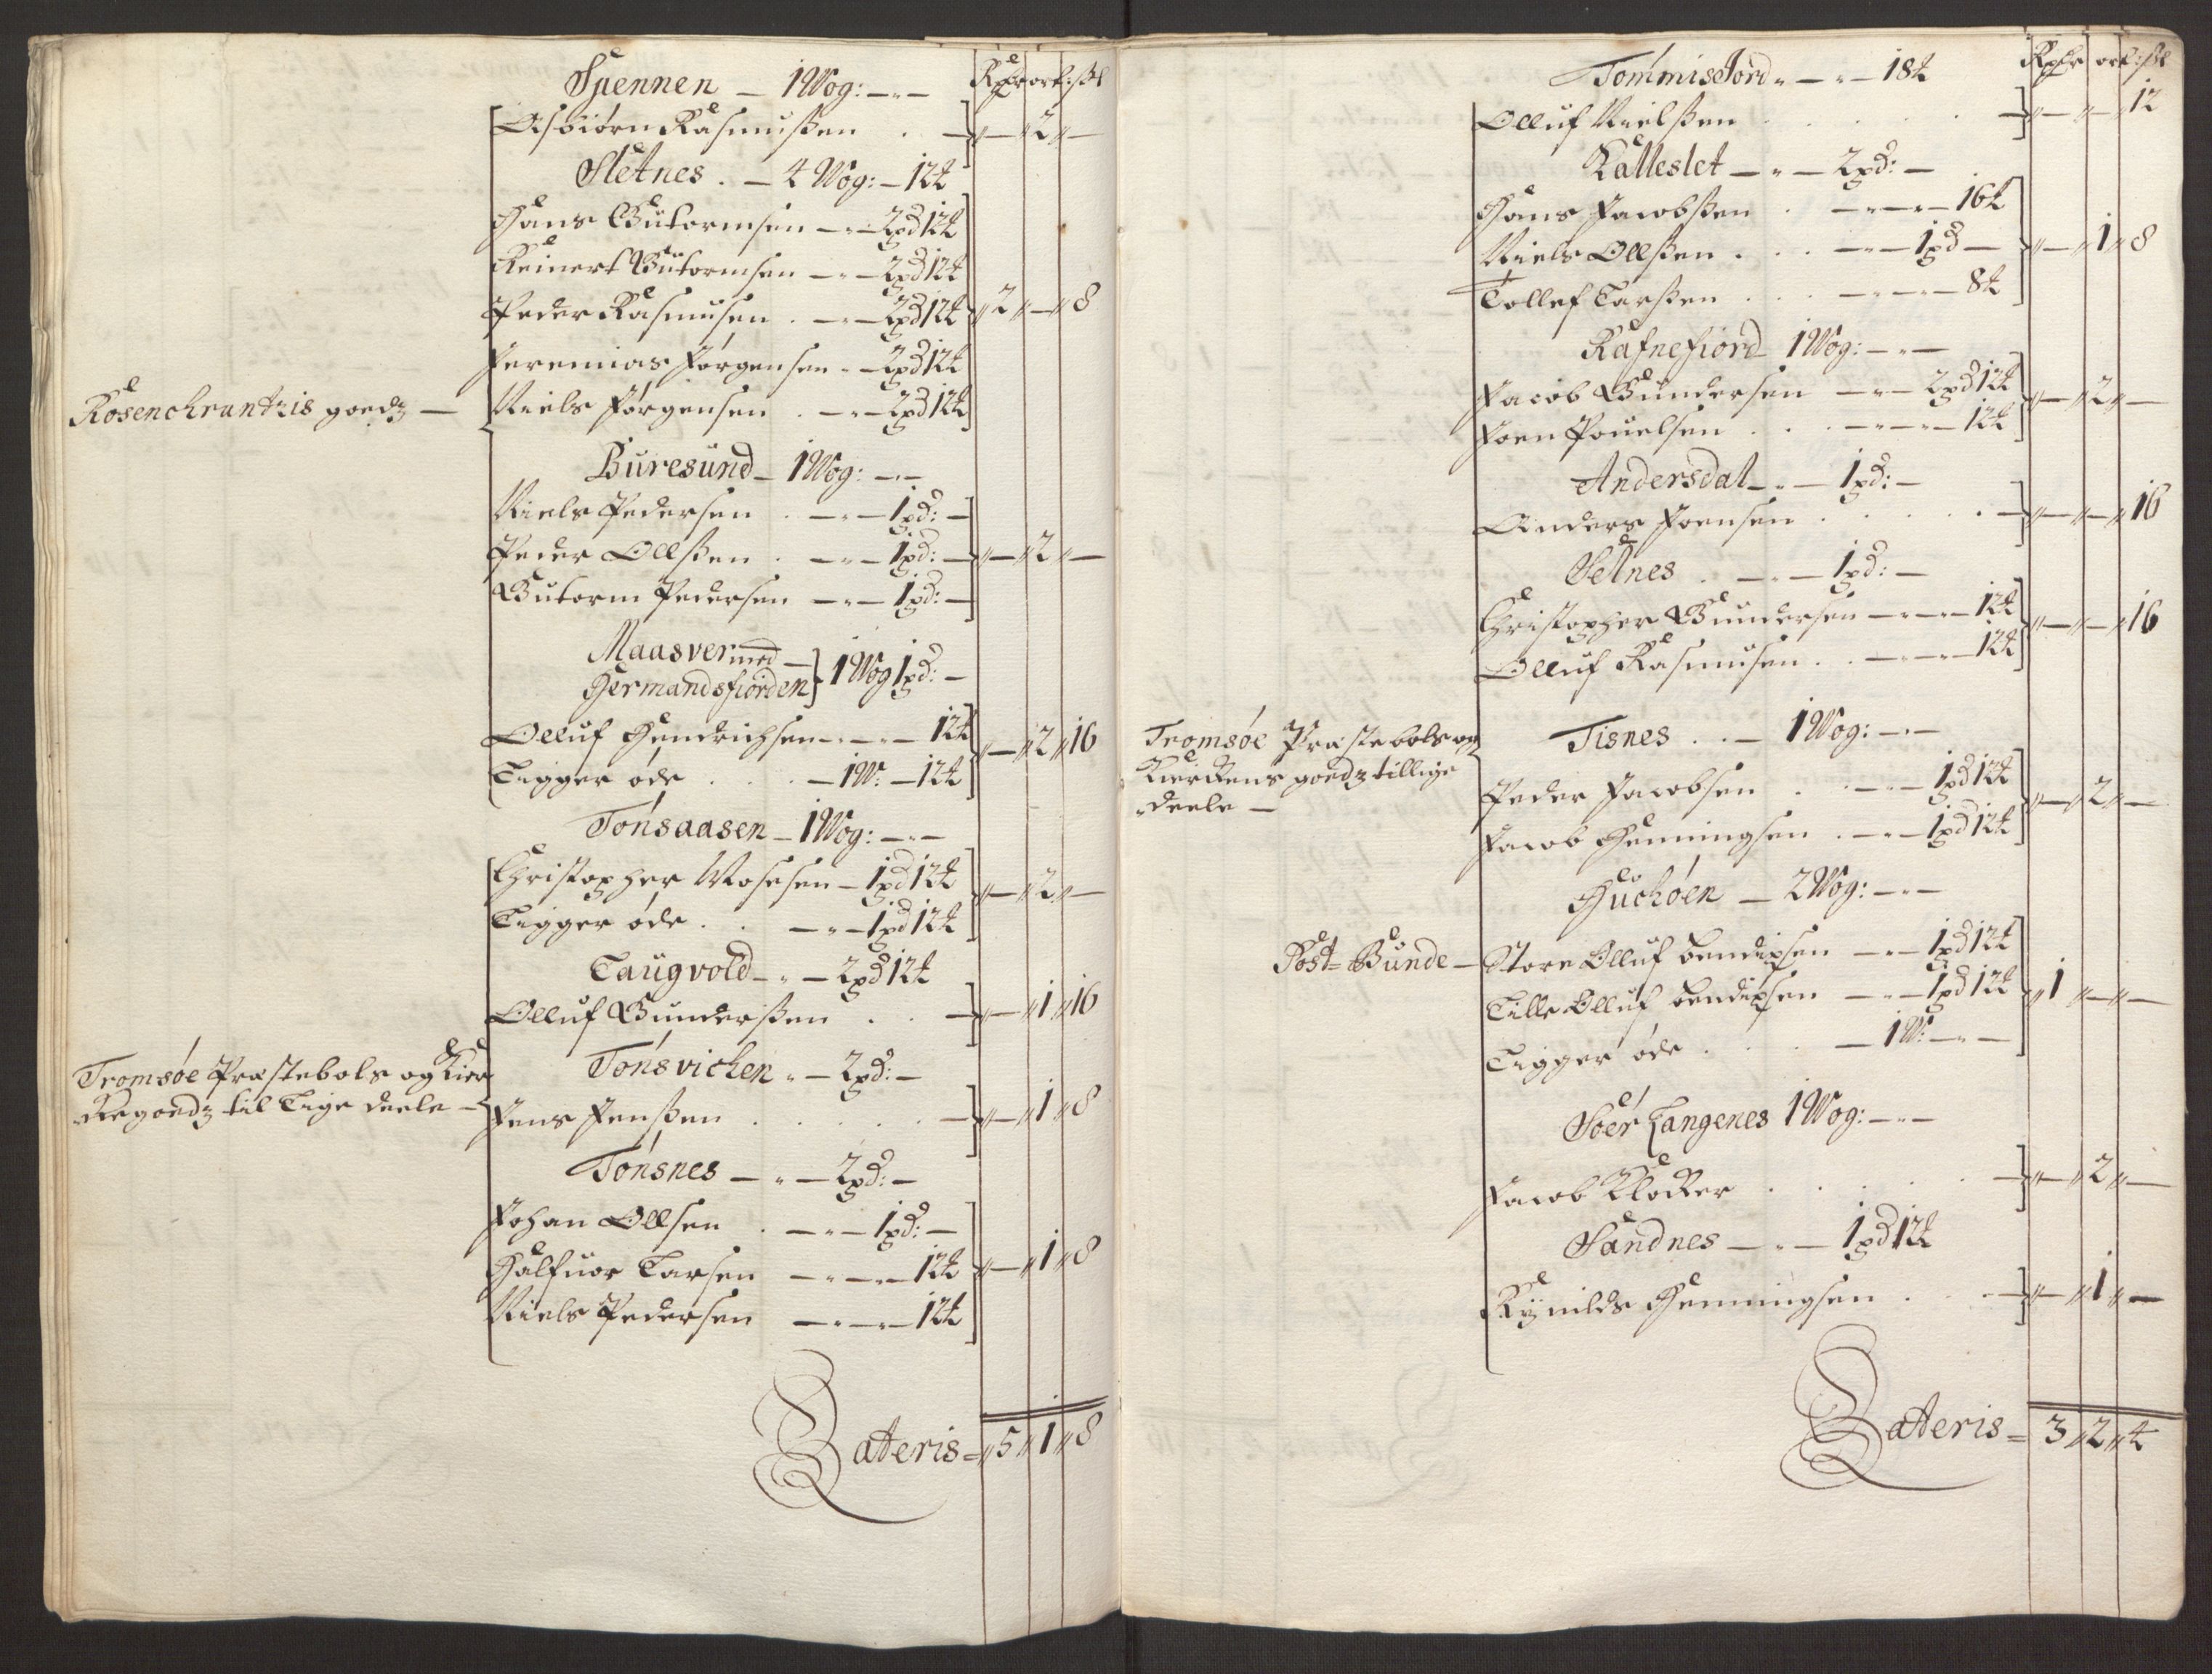 Spennen – 1 Wog: – „ –
Rdr ort: sk
Asbiørn Rasmussen . – „ – „ 2 „ –
Sletnes . – 4 Wog: – 12 ℔
Hans Gutormsen – „ – 2 pd 12 ℔
Reinert Gutormsen – „ – 2 pd 12 ℔
Peder Rasmusen . – „ – 2 pd 12 ℔ „ 2 „ – „ 8
Jeremias Jørgensen – „ – 2 pd 12 ℔
Rosenchrantzis goedz –
Niels Jørgensen . – „ – 2 pd 12 ℔
Buresund – 1 Wog: – „ –
Niels Pedersen . – „ – 1 pd: –
Peder Ollssen . – „ – 1 pd: – „ – „ 2 „ –
Gutorm Pedersen – „ – 1 pd: –
Maasver med –
Hermandsfiorden } 1 Wog 1 pd: –
Olluf Hendrichsen – „ – „ – 12 ℔ „ – „ 2 „ 16
Ligger øde . . . – 1 W: – 12 ℔
Tonsaasen – 1 Wog: – „ –
Christopher Mosesen – 1 pd 12 ℔ „ – „ 2 „ –
Ligger øde . . – „ – 1 pd 12 ℔
Laugvold – „ – 2 pd 12 ℔
Olluf Gunderssen . . – „ – „ 1 „ 16
Tonsvichen „ – 2 pd: –
Tromsøe Præstebols og Kier
Ke goedz til Lige deele –
Jens Jenssen . . . . . – „ – „ 1 „ 8
Tonsnes – „ – 2 pd: –
Johan Ollsen . – „ – 1 pd: –
Halfuor Larsen – „ – „ – 12 ℔ „ – „ 1 „ 8
Niels Pedersen – „ – „ – 12 ℔
Lateris = „ 5 „ 1 „ 8
Tommisjord „ – „ – 18 ℔
Rdr ort: sk
Olluf Nielssen . . . . . – „ – „ – „ 12
Kalleslet – „ – 2 pd: –
Hans Jacobssen . – „ – „ – 16 ℔
Niels Ollssen . . . – „ – 1 pd – „ – „ 1 „ 8
Tollef Larssen . . . – „ – „ – 8 ℔
Rafnefiord 1 Wog: – „ –
Jacob Gundersen – „ – 2 pd 12 ℔ „ – „ 2 „ –
Joen Pouelsen . . . – „ – „ – 12 ℔
Andersdal – „ – 1 pd: –
Anders Joensen . . . . . – „ – „ – „ 16
Selnes . – „ – 1 pd: –
Christopher Gundersen – „ – „ – 12 ℔ „ – „ – „ 16
Olluf Rasmusen . . – „ – „ – 12 ℔
Tromsøe Præstebols og
Kierkens goedz tillige
deele –
Tisnes . . – 1 Wog: – „ –
Peder Jacobsen . . – „ – 1 pd 12 ℔ „ – „ 2 „ –
Jacob Hemingsen . – „ – 1 pd 12 ℔
Huchøen – 2 Wog: – „ –
Post = Bunde –
Store Olluf Bendixsen – „ – 1 pd 12 ℔
Lille Olluf Bendixsen – „ – 1 pd 12 ℔ „ 1 „ – „ –
Ligger øde . . . . – 1 W: – „ –
Søer Langenes 1 Wog: – „ –
Jacob Klocker . . . . . – „ – „ 2 „ –
Sandnes – „ – 1 pd 12 ℔
Rynilds Hemmingsen . . . – „ – „ 1 „ –
Lateris = 3 „ 2 „ 4